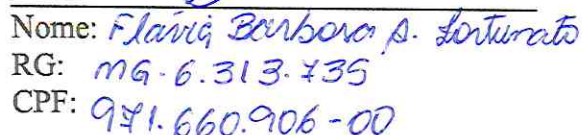 Nome: Flávia Barbosa A. Fortunato
RG: MG-6.313.735
CPF: 971.660.906-00